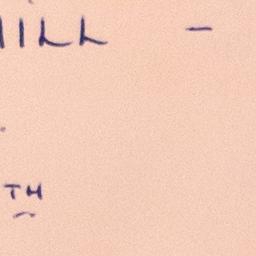 HILL -
TH